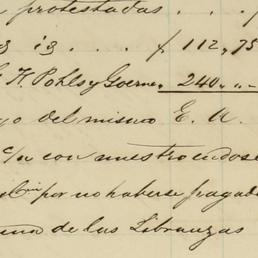 protestadas . . .
is . . . . ƒ. 112,75
H. Pohls y Goerne, 240,,--
go del mismo E. A.
c/a con nuestro endos
por no haberse pagad
una de las Libranzas